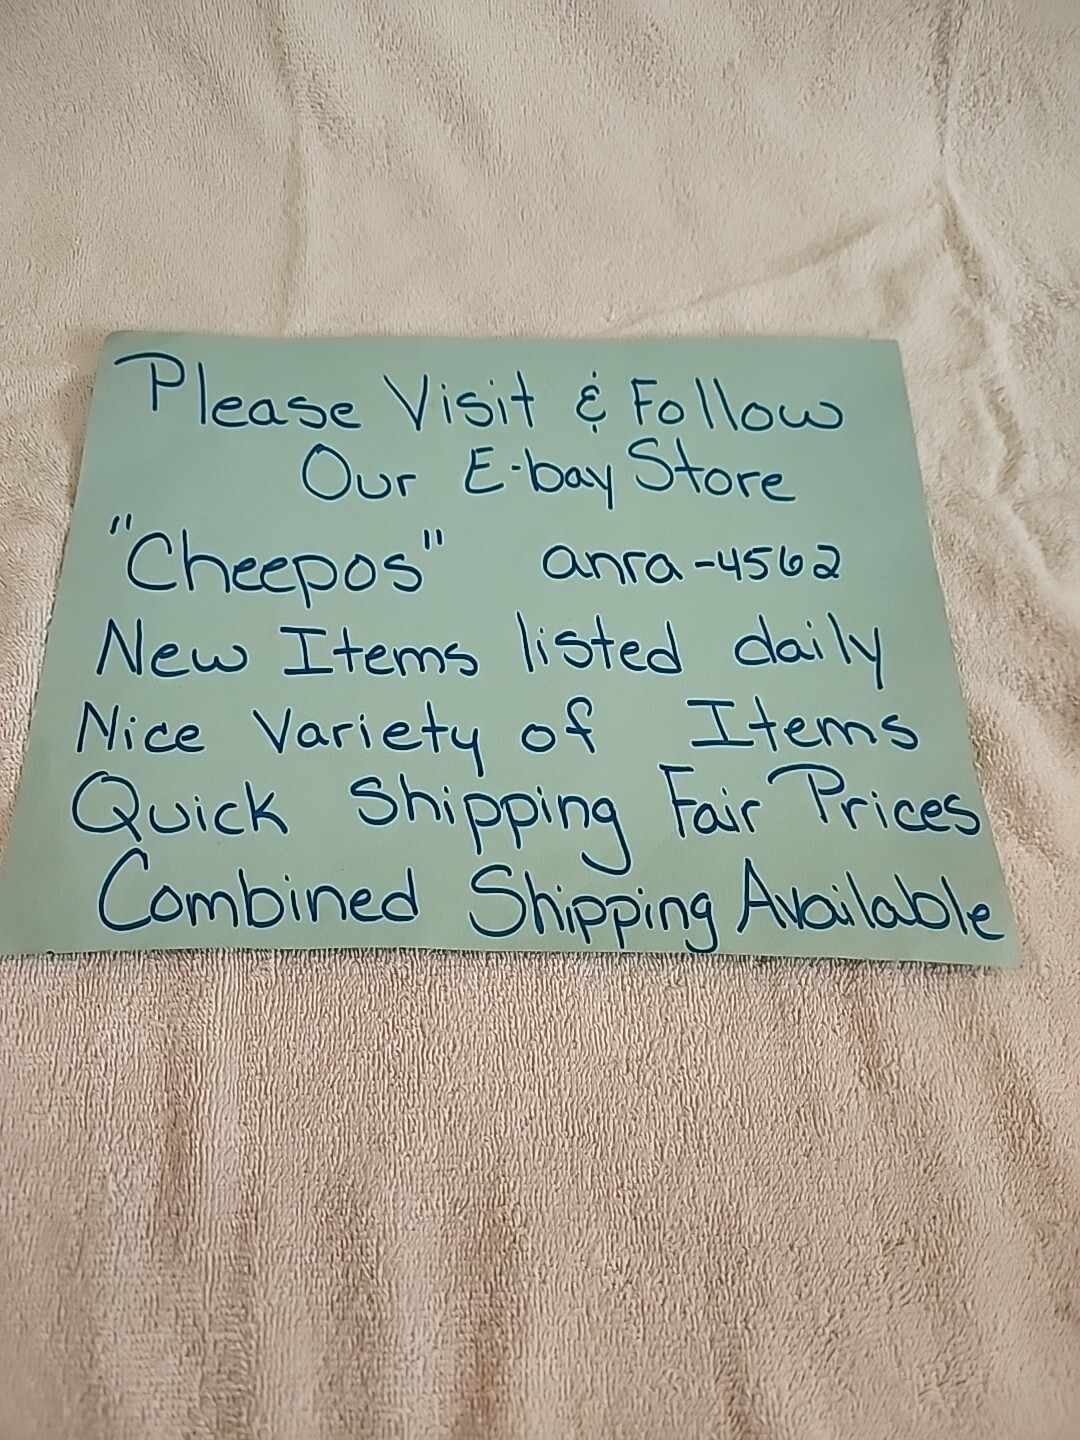 Please Visit & Follow
Our E-bay Store
"Cheepos" anra-4562
New Items listed daily
Nice Variety of Items
Quick Shipping Fair Prices
Combined Shipping Available